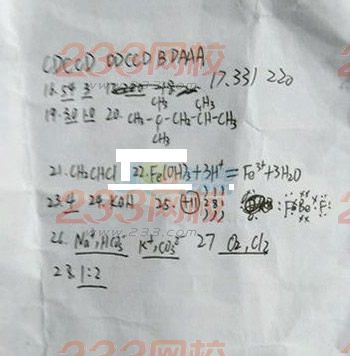 CDCCD DDCCD BDAAA
16. 54 3 17.331 220
19. 30 10 20. CH₃-C-CH₂-CH-CH₃
CH₃ CH₃
CH₃
21. CH₂CHCl 22. Fe(OH)₃+3H⁺=Fe³⁺+3H₂O
23. 4 24. KOH 25. +11 2 8 1
26. Na⁺, HCO₃⁻ K⁺, CO₃²⁻ 27 O₂, Cl₂
28. 1:2
233网校
www.233.com